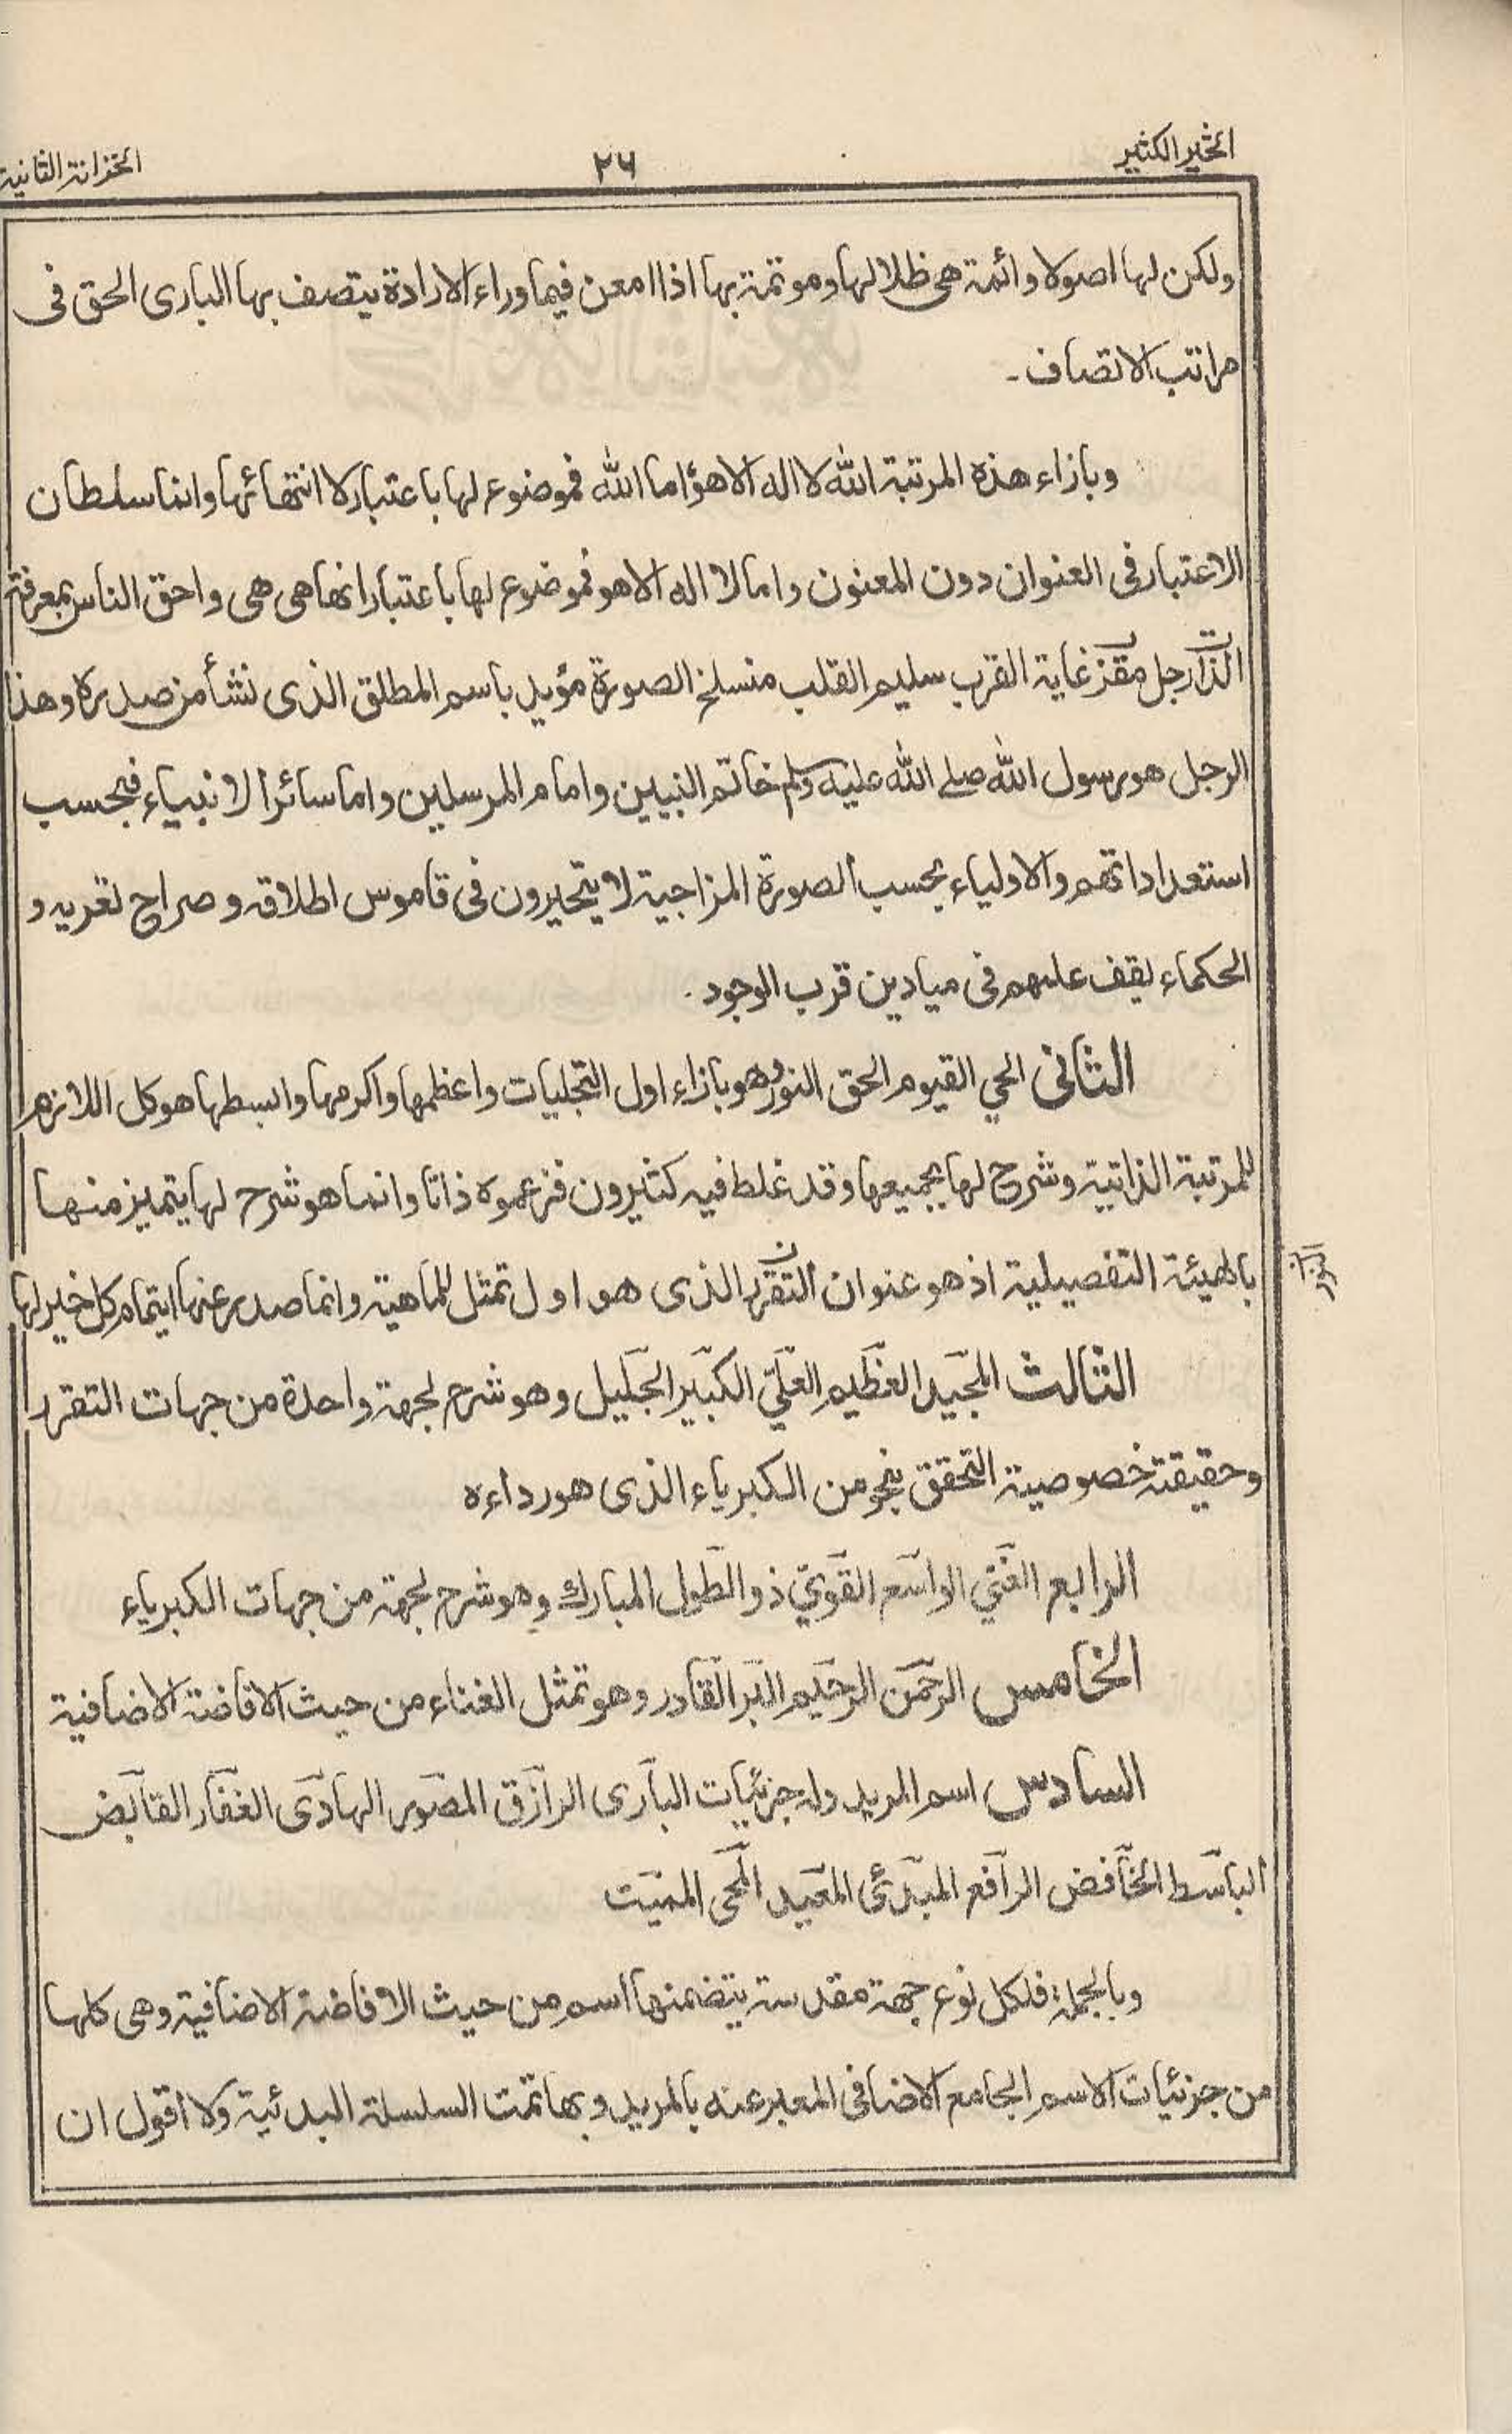 الخير الكثير
٢٦
الخزانة الثانية
ولكن لها اصولا وائمة هى ظلالها وموتمة بها اذا امعن فيما وراء الارادة يتصف بها البارى الحق فى
مراتب الاتصاف ۔
وبازاء هذه المرتبة الله لا اله الا هو اما الله فموضوع لها باعتبار لا انتهائها وانما سلطان
الاعتبار فى العنوان دون المعنون واما لا اله الا هو فموضوع لها باعتبار انها هى هى واحق الناس بمعرفة
الذات رجل مقرب غاية القرب سليم القلب منسلخ الصورة مؤيد باسم المطلق الذى نشأ من صدره وهذا
الرجل هو رسول الله صلے الله عليه وسلم خاتم النبيين وامام المرسلين واما سائر الانبياء فبحسب
استعداداتهم والاولياء بحسب الصورة المزاجية لا يتحيرون فى قاموس اطلاقه وصراح تعريه و
الحكماء يقف علمهم فى ميادين قرب الوجود .
الثانى الحي القيوم الحق النور وهو بازاء اول التجليات واعظمها واكرمها وابسطها هو كل اللازم
للمرتبة الذاتية وشرح لها بجميعها وقد غلط فيه كثيرون فزعموه ذاتا وانما هو شرح لها يتميز منها
بالهيئة التفصيلية اذ هو عنوان التقرر الذى هو اول تمثل للماهية وانما صدر عنها ايتمام كل خير لها
الثالث المجيد العظيم العلي الكبير الجليل وهو شرح لجهة واحدة من جهات التقرر
وحقيقته خصوصية التحقق بنحو من الكبرياء الذى هو رداءه
الرابع الغني الواسع القوي ذو الطول المبارك وهو شرح لجهة من جهات الكبرياء
الخامس الرحمن الرحيم البر القادر وهو تمثل الغناء من حيث الافاضة الاضافية
السادس اسم المريد وله جزئيات البارى الرازق المصور الهادى الغفار القابض
الباسط الخافض الرافع المبدئ المعيد المحى المميت
وبالجملة فلكل نوع جهة مقدسة يتضمنها اسم من حيث الافاضة الاضافية وهى كلها
من جزئيات الاسم الجامع الاضافى المعبر عنه بالمريد وبها تمت السلسلة البدئية ولا اقول ان